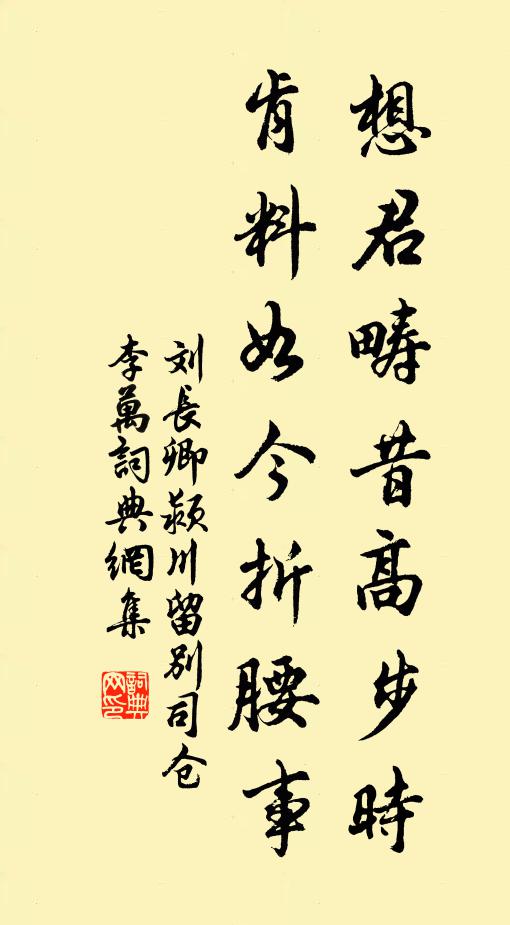 想君畴昔高步時
肯料如今折腰事
刘長卿颍川留别司仓
李萬詞典網集
詞典
网印